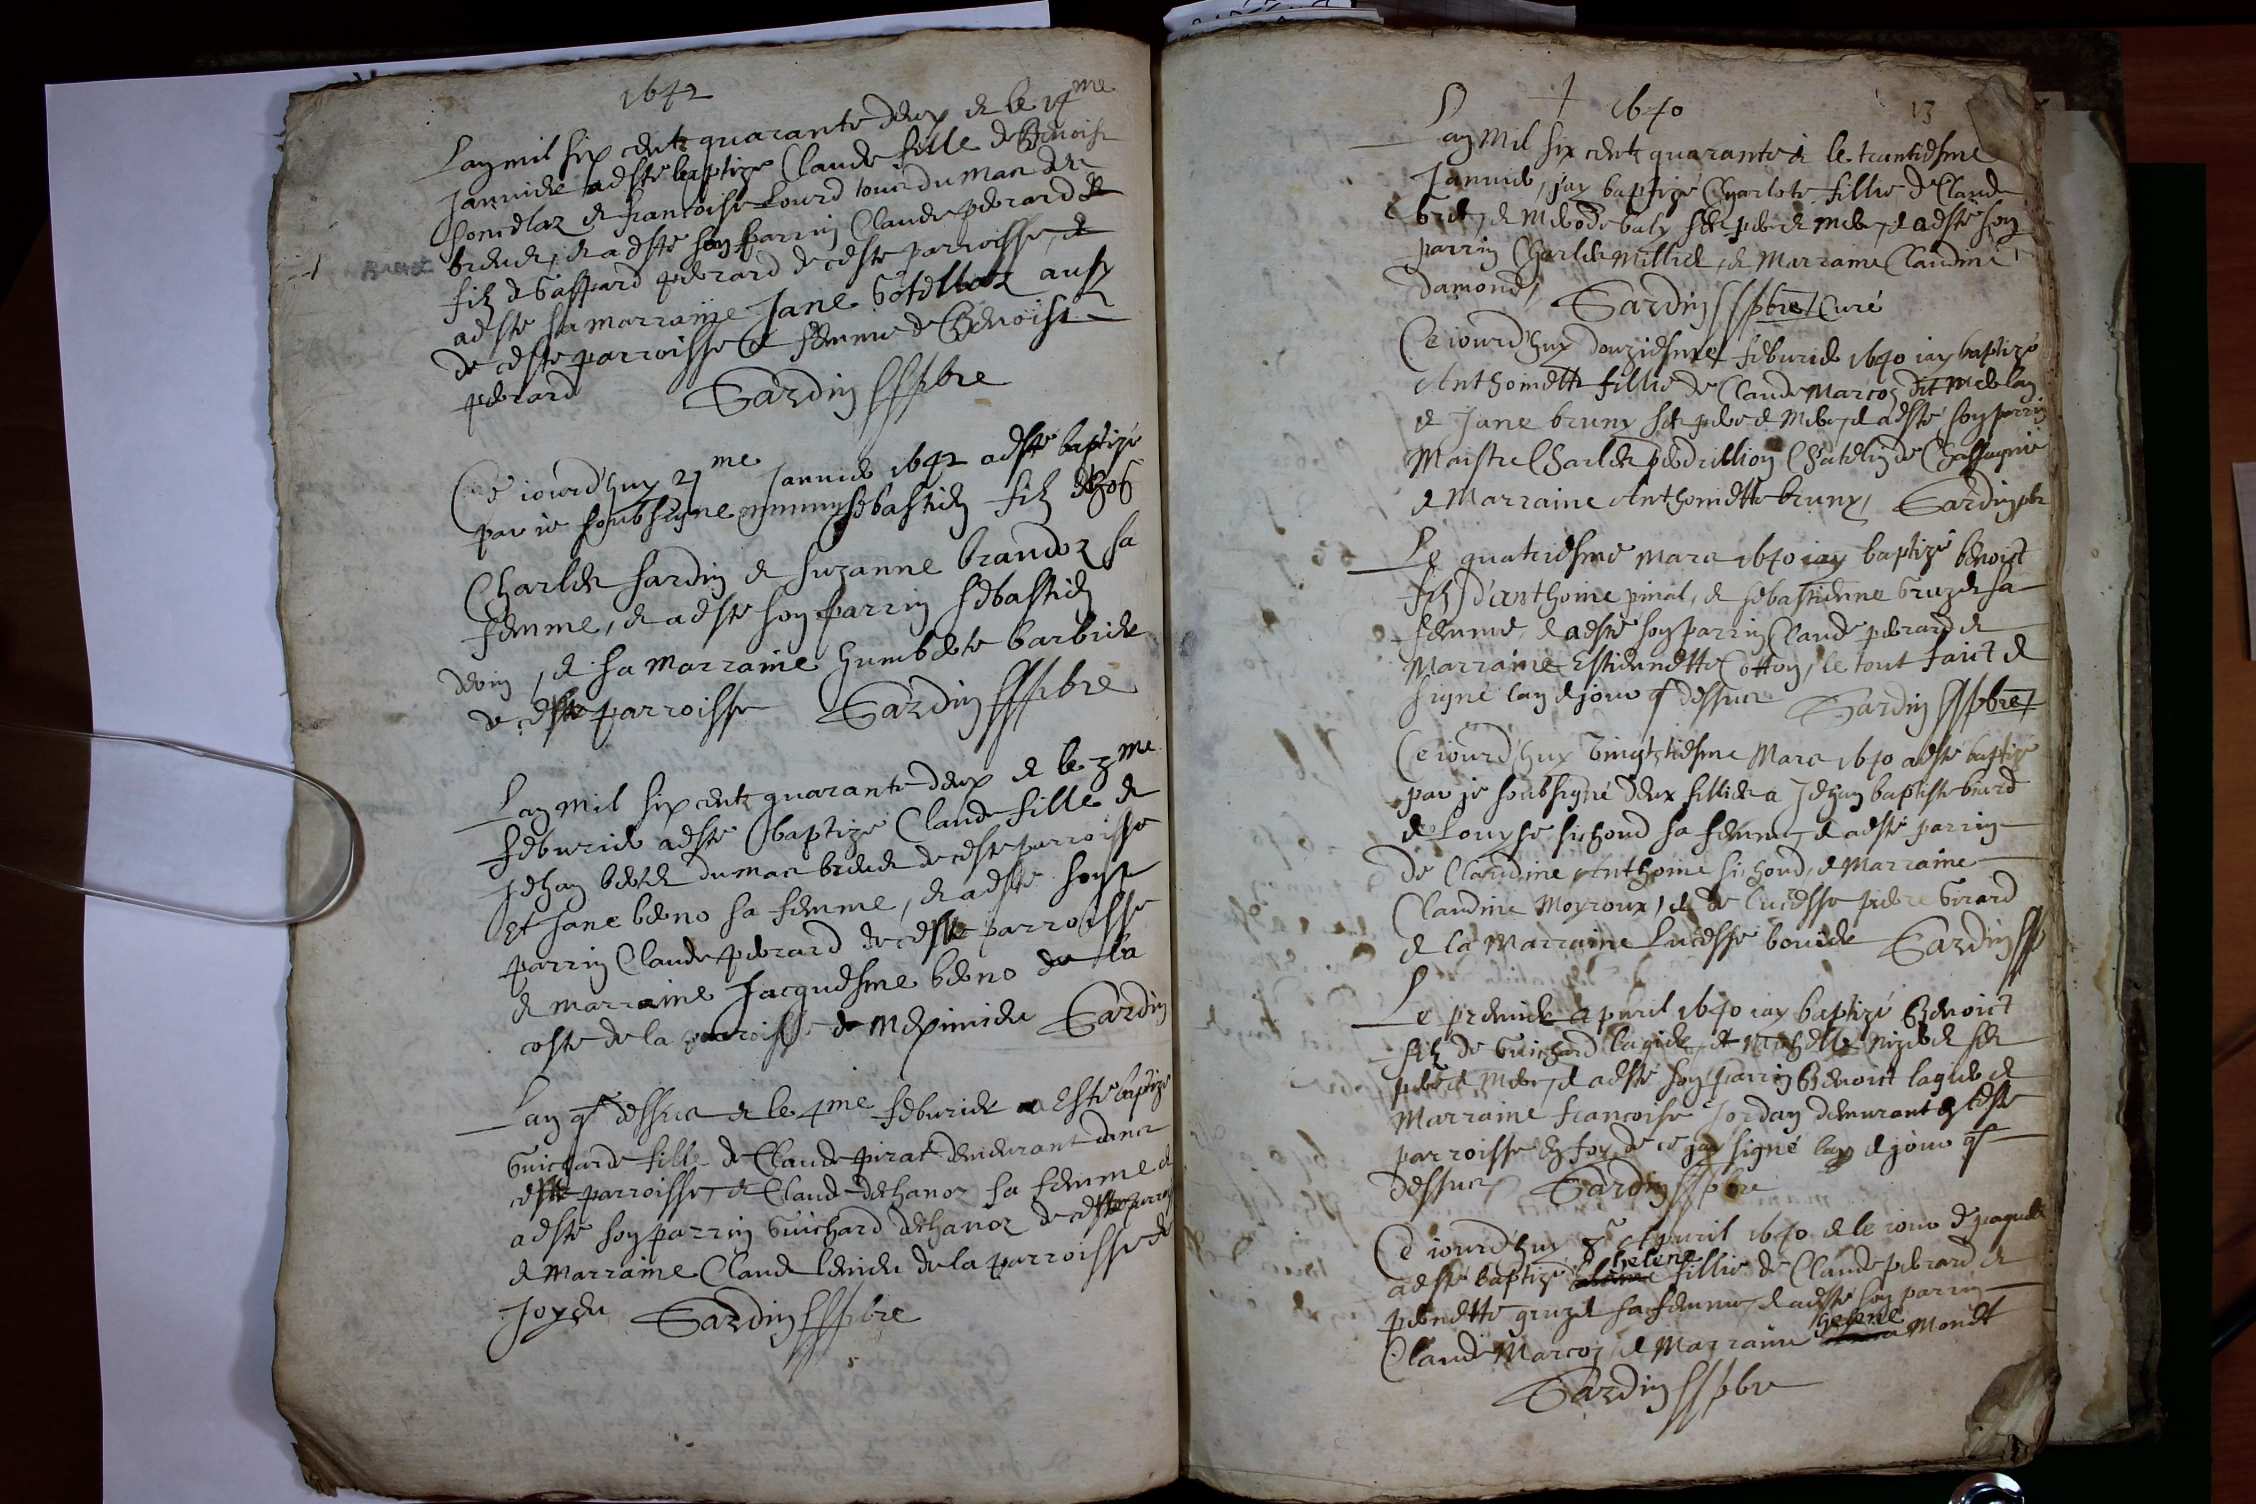 1642
Lan mil six centz quarante deux et le 14me
Janvier a esté baptizé Claude fille de Benoist
et francoise Lourd tous du mas des
et a esté son parrin Claude perard
filz de Gaspard perard de ceste parroisse, et
a esté sa marraine Jane ausy
de ceste parroisse femme de Benoist
perard Sardin pbre
Ce iourdhuy 21me Janvier 1642 a esté baptizé
par ie soubsigné sebastien filz de
Charles sardin et suzanne brandoz sa
femme, et a esté son parrin sebastien
et sa marraine humberte barbier
de ceste parroisse Sardin pbre
Lan mil six centz quarante deux et le 3me
feburier a esté baptizé Claude fille de
Jehan du mas de ceste parroisse
Et Jane beno sa femme, et a esté son
parrin Claude perard de ceste parroisse
et marraine Jacquesme beno de la
coste de la parroisse de Meximieu Sardin
Lan qs dessus et le 4me feburier a Esté baptizé
Guicharde fille de Claude pirat demeurant dans
ceste parroisse, et Claude dehanoz sa femme et
a esté son parrin Guichard dehanoz de ceste parroi
et marraine Claude de la parroisse de
Joyeu Sardin pbre
1640 13
Lan Mil six centz quarante et le trantiesme
Janvier, jay baptizé Charlote fillie de Claude
ses pere et mere, et a esté son
parrin Charles Millier, et Marraine Claudine
Damond, Sardin pbre Curé
Ce iourdhuy douziesme feburier 1640 iay baptizé
Anthoinette fillie de Claude Marcoz dit
et Jane bruny ses pere et mere, et a esté son parrin
Maistre Charles pedrillion Chatelin de Chassagnie
et Marraine Anthoinette bruny, Sardin pbr
Le quatriesme Mars 1640 iay baptizé benoict
filz d'anthoine pinat, et sebastienne Gruzet sa
femme, et a esté son parrin Claude perard et
Marraine Estiennette Cotton, le tout faict et
signé lan et jour qs dessus Sardin pbre
Ce iourdhuy vingtztiesme Mars 1640 a esté baptizé
par je soubsigné deux fillies a Jehan baptiste
et Louyse sichoud sa femme, et a esté parrin
de Claudine Anthoine sichoud, et Marraine
Claudine Moyroux, et de Lucresse piere Girard
et la Marraine Lucresse bovier Sardin
Le premier apvril 1640 iay baptizé Benoict
filz de Guichard lagier, et ses
pere et mere, et a esté son parrin Benoict lagier et
Marraine francoise Jordan demeurant en ceste
parroisse en foy de ce jay signé lan et jour qs
dessus, Sardin pbre
Ce iourdhuy 8e Apvril 1640 et le iour de pasques
a esté baptizé helene fillie de Claude perard et
pernette gruzet sa femme, et a esté son parrin
Claude Marcoz, et Marraine helene Monet
Sardin pbre